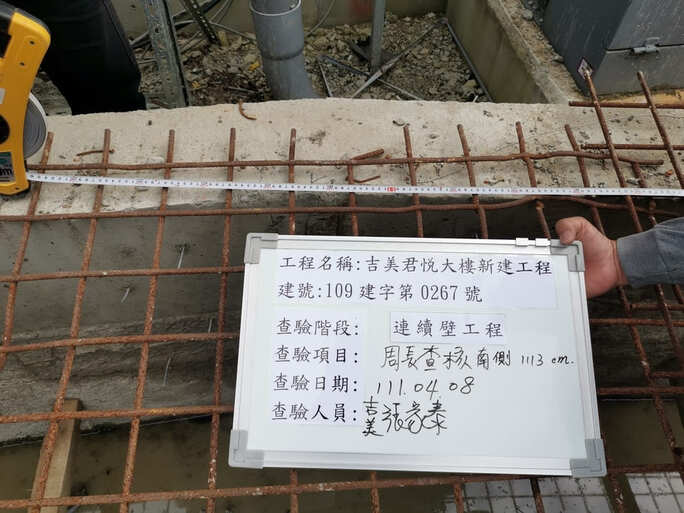 工程名稱:吉美君悅大樓新建工程
建號:109建字第0267號
查驗階段: 連續壁工程
查驗項目: 周長查核南側 1113 cm.
查驗日期: 111.04.08
查驗人員: 吉美 張